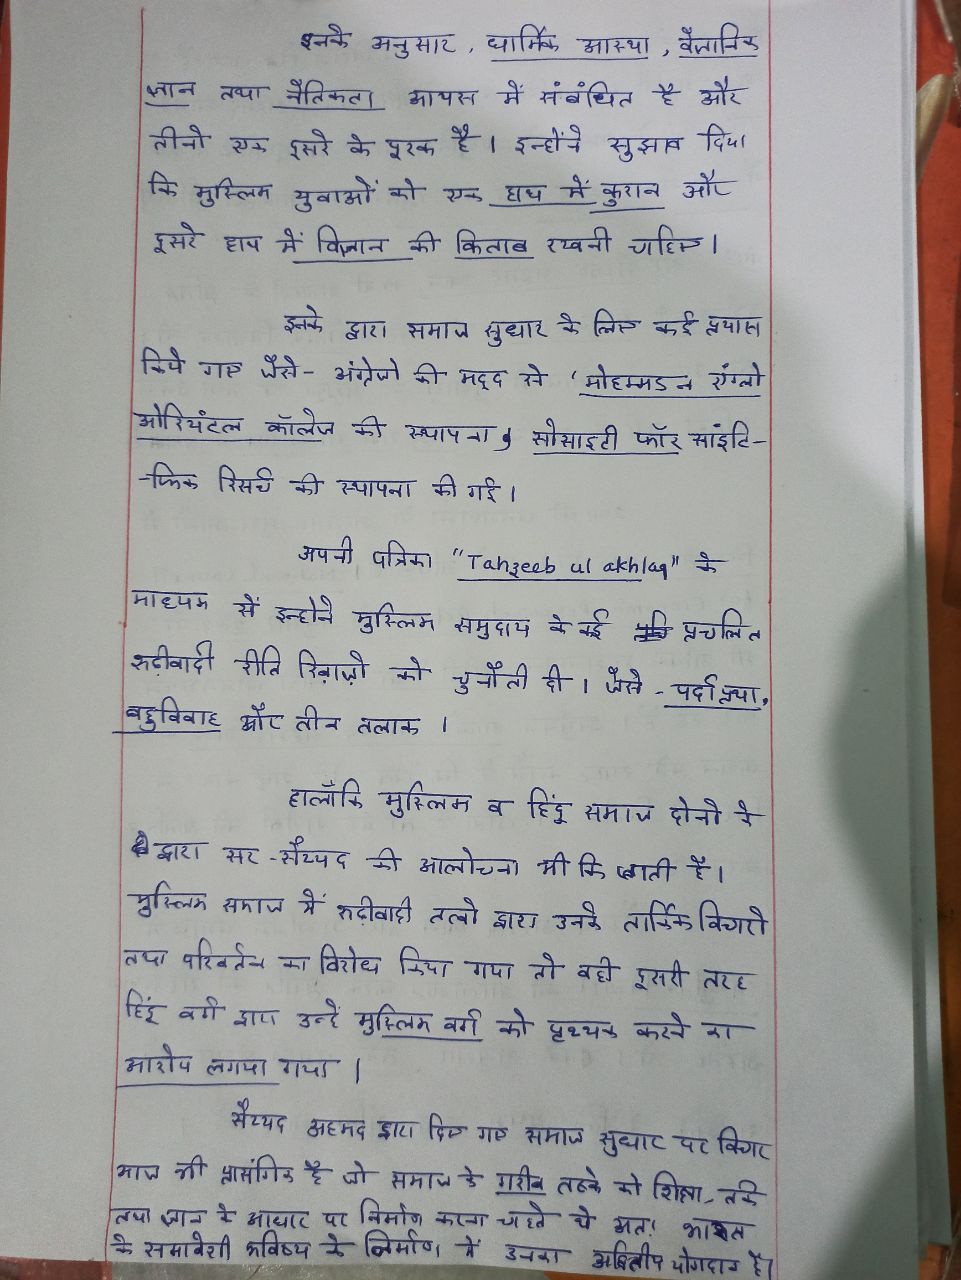 इनके अनुसार, धार्मिक आस्था, वैज्ञानिक
ज्ञान तथा नैतिकता आपस में संबंधित है और
तीनो एक दूसरे के पूरक है। इन्होंने सुझाव दिया
कि मुस्लिम युवाओं को एक हाथ में कुरान और
दूसरे हाथ में विज्ञान की किताब रखनी चाहिए।
इनके द्वारा समाज सुधार के लिए कई प्रयास
किये गए जैसे - अंग्रेजो की मदद से 'मोहम्मडन एंग्लो
ओरियंटल कॉलेज की स्थापना, सोसाइटी फॉर साइंटि-
-फिक रिसर्च की स्थापना की गई।
अपनी पत्रिका "Tahzeeb ul akhlaq" के
माध्यम से इन्होने मुस्लिम समुदाय के कई प्रचलित
रूढ़ीवादी रीति रिवाज़ो को चुनौती दी। जैसे - पर्दा प्रथा,
बहुविवाह और तीन तलाक।
हालाँकि मुस्लिम व हिंदू समाज दोनो के
द्वारा सर-सैय्यद की आलोचना भी कि जाती है।
मुस्लिम समाज में रूढ़ीवादी तत्वो द्वारा उनके तार्किक विचारो
तथा परिवर्तन का विरोध किया गया तो वही दूसरी तरह
हिंदू वर्ग द्वारा उन्हें मुस्लिम वर्ग को पृथ्थक करने का
आरोप लगया गया।
सैय्यद अहमद द्वारा दिए गए समाज सुधार पर विचार
आज भी प्रासंगिक है जो समाज के गरीब तबके को शिक्षा, तर्क
तथा ज्ञान के आधार पर निर्माण करना चाहते थे अतः भारत
के समावेशी भविष्य के निर्माण में उनका अद्वितीय योगदान है।